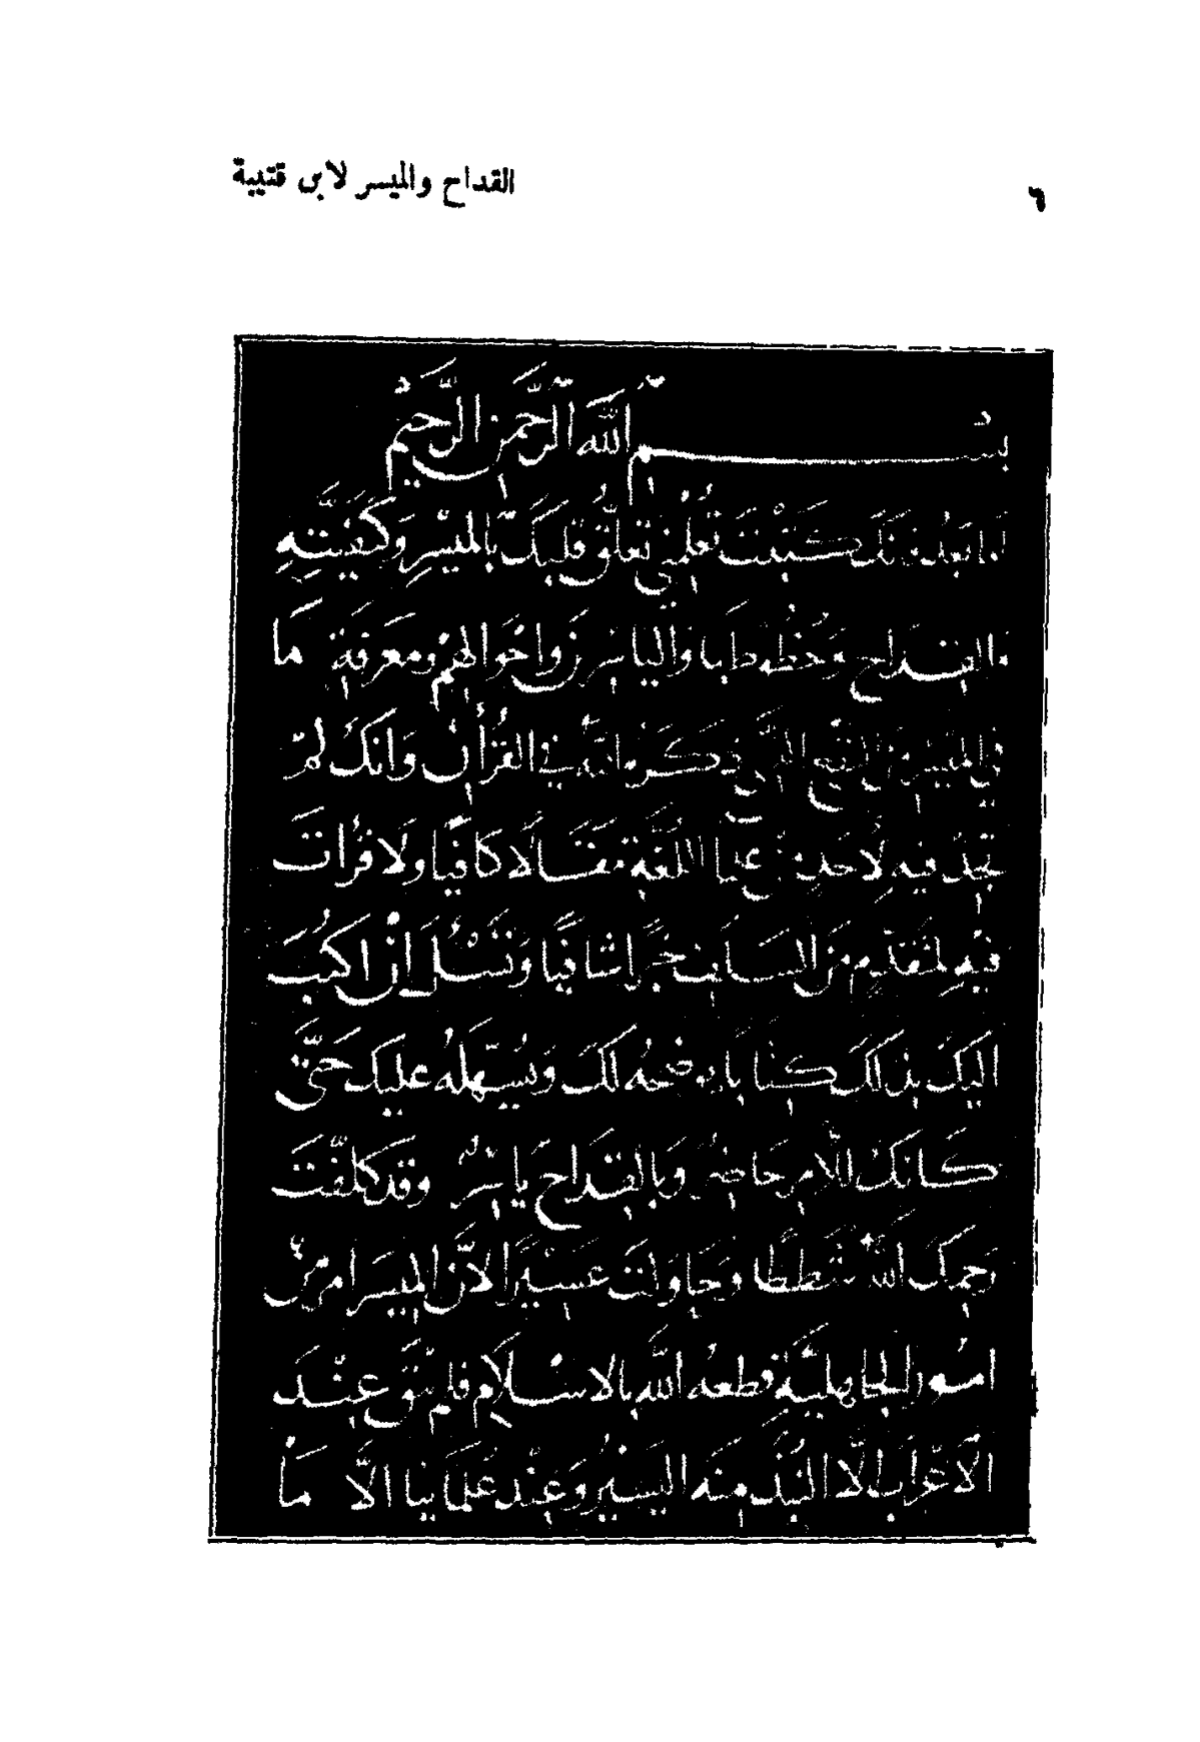 ٦
القداح والميسر لابن قتيبة
بسم الله الرَّحمن الرَّحيم
اما بعد فانك كتبت تُعلمني تعلُّق قلبك بالميسر وكيفيَّته
والقداح وحظوظها والياسرين واحوالهم ومعرفة ما
في الميسر من النفع الذي ذكره الله في القرأن وانك لم
تجد فيه لاحد من علماء اللغة مقالًا كافيًا ولا قرأت
فيه لمتقدم من السلف خبرًا شافيًا وتسئل ان اكتب
اليك بذلك كتابًا يوضحه لك ويُسهله عليك حتَّى
كانك للامر حاضر وبالقداح ياسر وقد كلَّفت
رحمك الله شططًا وحاولت عسيرًا لانَّ الميسر امر من
امور الجاهليَّة قطعه الله بالاسلام فلم يبق عند
الاعراب الَّا النبذ منه اليسير وعند علمائنا الَّا ما